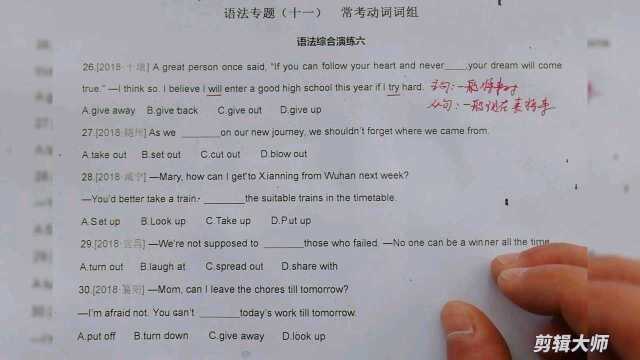 语法专题（十一） 常考动词词组
语法综合演练六
26.[2018·十堰] A great person once said, "If you can follow your heart and never_____,your dream will come
true." —I think so. I believe I will enter a good high school this year if I try hard. 主句:一般将来时
A.give away B.give back C.give out D.give up 从句:一般现在表将来
27.[2018·随州] As we _______on our new journey, we shouldn't forget where we came from.
A.take out B.set out C.cut out D.blow out
28.[2018·咸宁] —Mary, how can I get to Xianning from Wuhan next week?
—You'd better take a train. _______the suitable trains in the timetable.
A.Set up B.Look up C.Take up D.Put up
29.[2018·宜昌] —We're not supposed to _______those who failed. —No one can be a winner all the time.
A.turn out B.laugh at C.spread out D.share with
30.[2018·襄阳] —Mom, can I leave the chores till tomorrow?
—I'm afraid not. You can't _______today's work till tomorrow.
A.put off B.turn down C.give away D.look up
剪辑大师